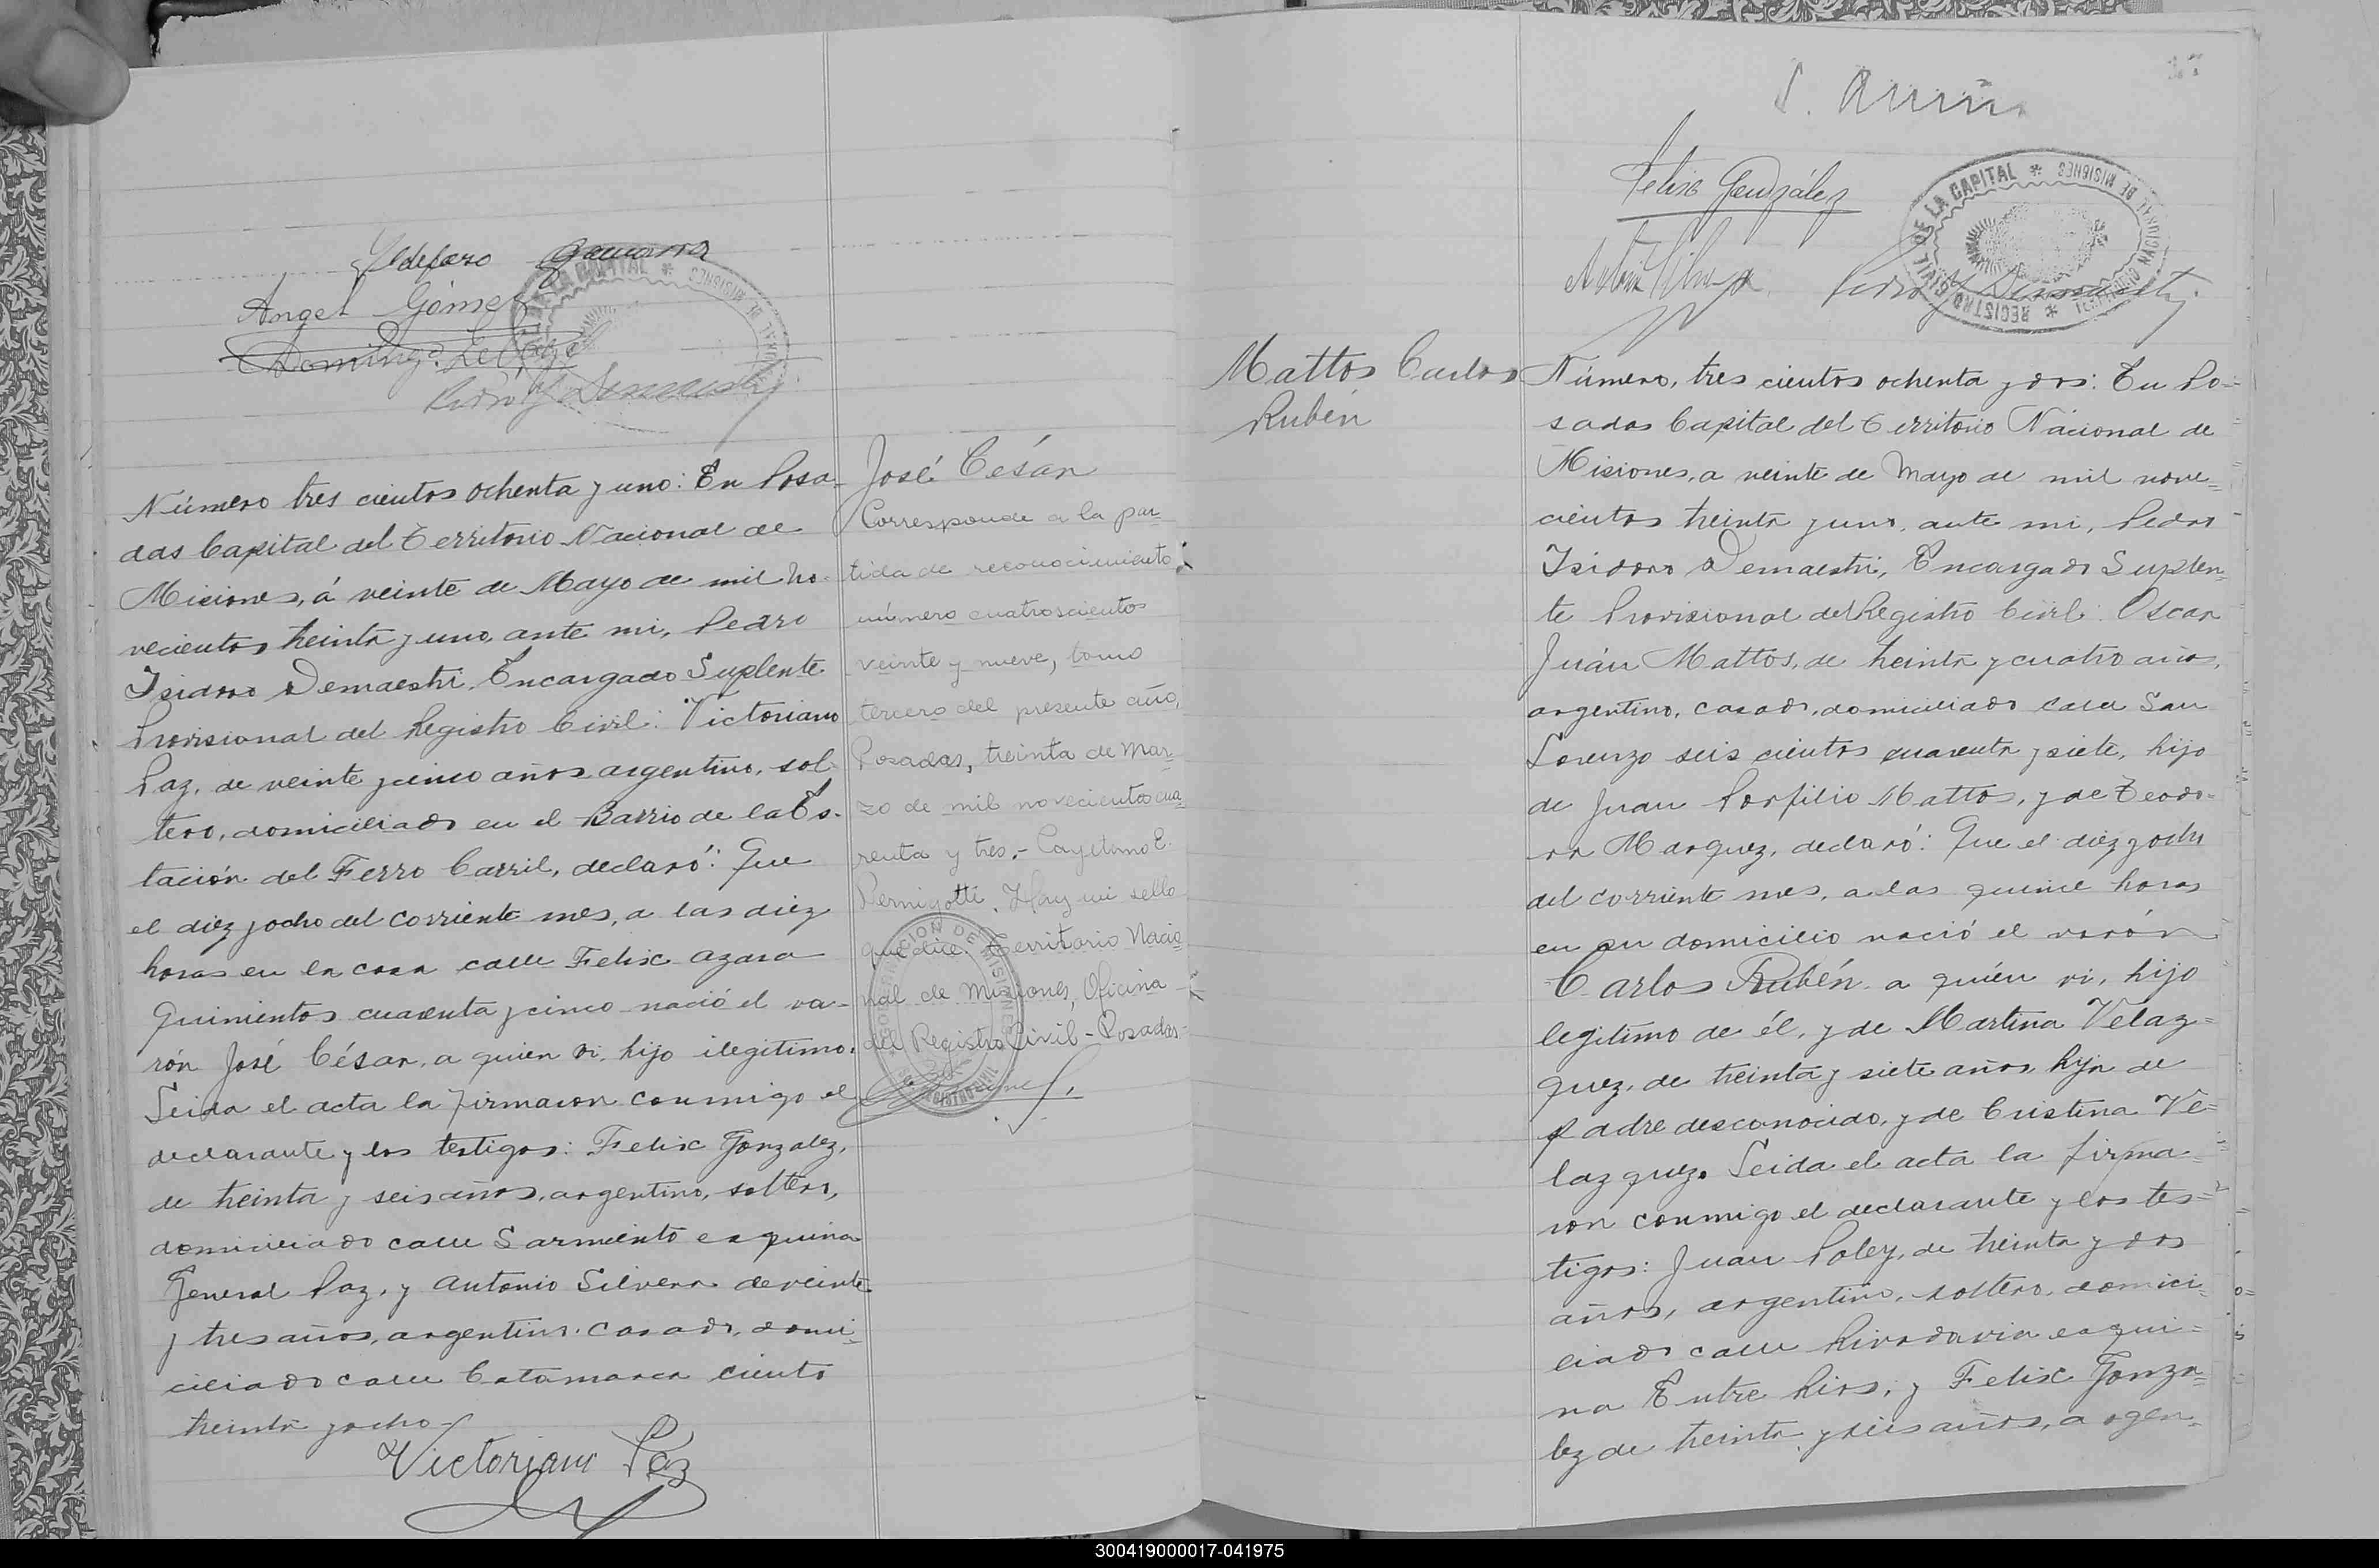 Ildefonso Gamarra
Angel Gómez
Domingo
Pedro Y Demaestri
Número tres cientos ochenta y uno: En Posa-
das Capital del Territorio Nacional de
Misiones, á veinte de Mayo de mil no-
vecientos treinta y uno, ante mi, Pedro
Isidoro Demaestri, Encargado Suplente
Provisional del Registro Civil: Victoriano
Paz, de veinte y cinco años argentino, sol-
tero, domiciliado en el Barrio de la Es-
tación del Ferro Carril, declaró: Que
el diez y ocho del corriente mes, a las diez
horas en la casa calle Felix Azara
quinientos cuarenta y cinco nació el va-
rón José César, a quien vi, hijo ilegitimo.
Leida el acta la firmaron conmigo el
declarante y los testigos: Felix Gonzalez,
de treinta y seis años, argentino, soltero,
domiciliado calle Sarmiento esquina
General Paz, y Antonio Silvera de veinte
y tres años, argentino, casado, domi-
ciliado calle Catamarca ciento
treinta y ocho-
Victoriano Paz
José César
Corresponde a la par-
tida de reconocimiento
número cuatroscientos
veinte y nueve, tomo
tercero del presente año,
Posadas, treinta de Mar-
zo de mil novecientos cua-
renta y tres.- Cayetano E.
Pernigotti. Hay un sello
que dice: Territorio Nacio-
nal de Misiones, Oficina
del Registro Civil - Posadas-
17
Felix González
Antonio Silvera
Pedro Y Demaestri
REGISTRO CIVIL DE LA CAPITAL * TERRITORIO NACIONAL DE MISIONES *
Mattos Carlos
Rubén
Número, tres cientos ochenta y dos: En Po-
sadas Capital del Territorio Nacional de
Misiones, a veinte de Mayo de mil nove-
cientos treinta y uno, ante mi, Pedro
Isidoro Demaestri, Encargado Suplen-
te Provisional del Registro Civil: Oscar
Juán Mattos, de treinta y cuatro años,
argentino, casado, domiciliado calle San
Lorenzo seis cientos cuarenta y siete, hijo
de Juan Porfilio Mattos, y de Teodo-
ra Marquez, declaró: Que el diez y ocho
del corriente mes, a las quince horas
en su domicilio nació el varón
Carlos Rubén, a quién vi, hijo
legitimo de él, y de Martina Velaz-
quez, de treinta y siete años, hija de
padre desconocido, y de Cristina Ve-
lazquez. Leida el acta la firma-
ron conmigo el declarante y los tes-
tigos: Juan Poley, de treinta y dos
años, argentino, soltero, domici-
liado calle Rivadavia esqui-
na Entre Rios, y Felix Gonza-
lez de treinta y seis años, argen-
300419000017-041975